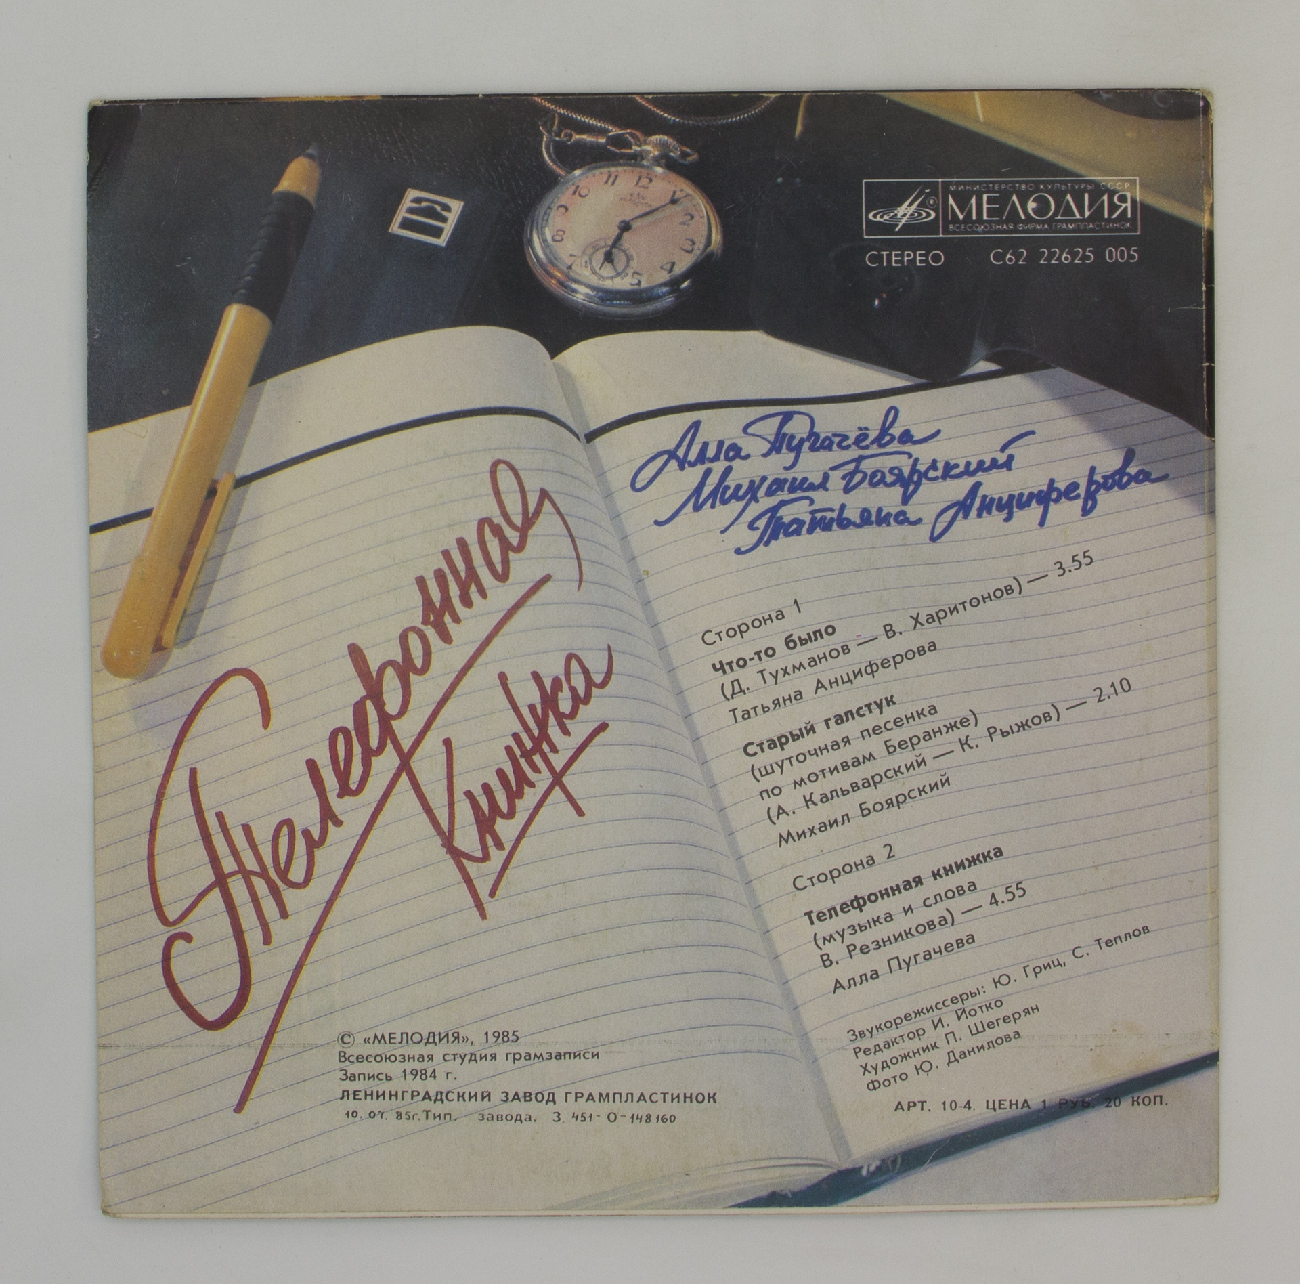 МИНИСТЕРСТВО КУЛЬТУРЫ СССР
МЕЛОДИЯ
ВСЕСОЮЗНАЯ ФИРМА ГРАМПЛАСТИНОК
СТЕРЕО С62 22625 005
12
11 12 1 2 3 4 5 7 8 9 10
Алла Пугачёва
Михаил Боярский
Татьяна Анциферова
Телефонная
Книжка
Сторона 1
Что-то было
(Д. Тухманов — В. Харитонов) — 3.55
Татьяна Анциферова
Старый галстук
(шуточная песенка
по мотивам Беранже)
(А. Кальварский — К. Рыжов) — 2.10
Михаил Боярский
Сторона 2
Телефонная книжка
(музыка и слова
В. Резникова) — 4.55
Алла Пугачева
Звукорежиссеры: Ю. Гриц, С. Теплов
Редактор И. Йотко
Художник П. Шегерян
Фото Ю. Данилова
© «МЕЛОДИЯ», 1985
Всесоюзная студия грамзаписи
Запись 1984 г.
ЛЕНИНГРАДСКИЙ ЗАВОД ГРАМПЛАСТИНОК
10. 07. 85г. Тип. завода. З. 451-О-148160
АРТ. 10-4. ЦЕНА 1 РУБ. 20 КОП.